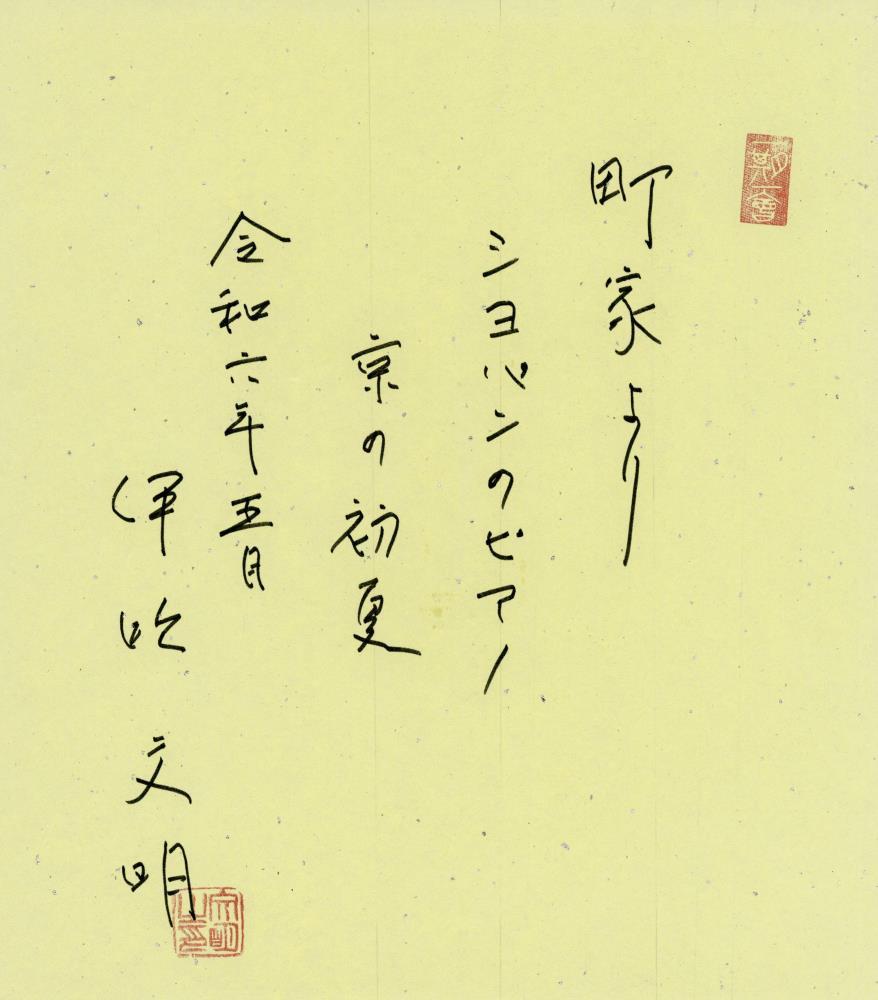 一期一會
町家より
ショパンのピアノ
京の初夏
令和六年五月
伊吹 文明